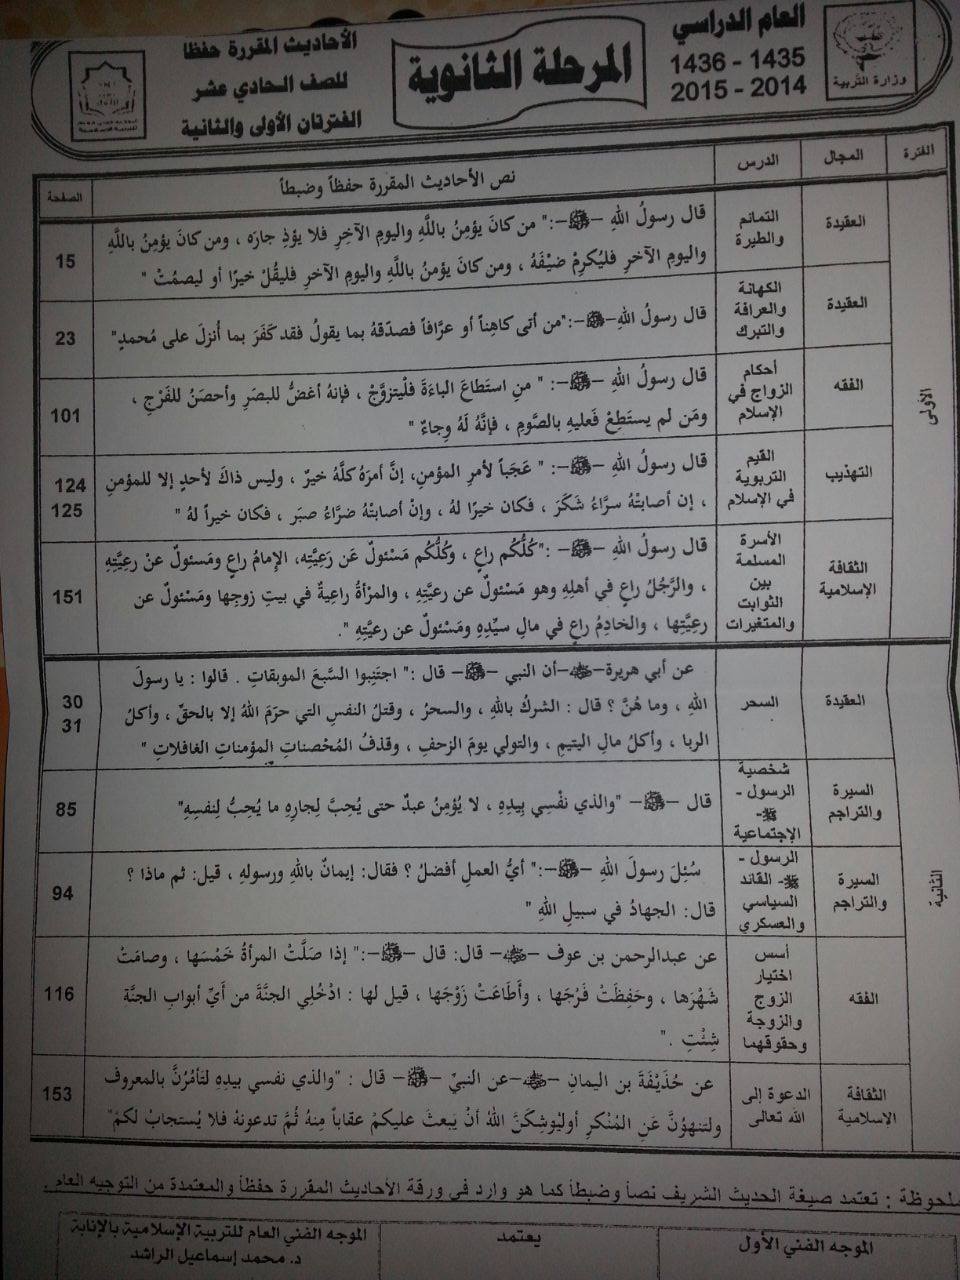 وزارة التربية
العام الدراسي
1435 - 1436
2014 - 2015
المرحلة الثانوية
الأحاديث المقررة حفظا
للصف الحادي عشر
الفترتان الأولى والثانية
الفترة
المجال
الدرس
نص الأحاديث المقررة حفظاً وضبطاً
الصفحة
الأولى
العقيدة
التمائم
والطيرة
قال رسولُ اللهِ –ﷺ–:" من كانَ يؤمِنُ باللَّهِ واليومِ الآخِرِ فلا يؤذِ جارَه ، ومن كانَ يؤمِنُ باللَّهِ
واليومِ الآخرِ فليُكرِمْ ضيْفَهُ ، ومن كانَ يؤمنُ باللَّهِ واليومِ الآخرِ فليقُلْ خيرًا أو ليصمُتْ "
15
العقيدة
الكهانة
والعرافة
والتبرك
قال رسولُ اللهِ–ﷺ–:"من أتى كاهِناً أو عرَّافاً فصدّقهُ بما يقولُ فقد كَفَرَ بما أُنزلَ على مُحمدٍ"
23
الفقه
أحكام
الزواج في
الإسلام
قال رسولُ اللهِ –ﷺ–: " منِ استَطاعَ الباءَةَ فلْيتزوَّجْ ، فإنهُ أغضُّ للبصَرِ وأحصَنُ للفَرْجِ ،
ومَن لم يستَطِعْ فَعليهِ بالصَّومِ ، فإنَّهُ لَهُ وِجاءٌ "
101
التهذيب
القيم
التربوية
في الإسلام
قال رسولُ اللهِ –ﷺ–: " عَجَباً لأمرِ المؤمنِ، إنَّ أمرَهُ كلَّهُ خيرٌ ، وليس ذاكَ لأحدٍ إلا للمؤمنِ
، إن أصابتْهُ سرَّاءُ شَكَرَ ، فكان خيرًا لهُ ، وإنْ أصابتْهُ ضرَّاءُ صبَر ، فكان خيراً لهُ "
124
125
الثقافة
الإسلامية
الأسرة
المسلمة
بين
الثوابت
والمتغيرات
قال رسولُ اللهِ –ﷺ– :"كُلُّكُم راعٍ ، وكُلُّكُم مَسْئولٌ عَن رَعِيَّتِه، الإِمامُ راعٍ ومَسئولٌ عنْ رعِيَّتِهِ
، والرَّجُلُ راعٍ في أهلِهِ وهو مَسْئولٌ عن رعيَّتِهِ ، والمرْأةُ راعِيةٌ في بيتِ زوجِها ومَسْئولٌ عن
رعِيَّتِها ، والخادِمُ راعٍ في مالِ سيِّدِهِ ومَسْئولٌ عن رعيَّتِهِ ".
151
الثانية
العقيدة
السحر
عن أبي هريرة–رضي الله عنه–أن النبي –ﷺ– قال :" اجتَنِبوا السَّبعَ الموبقاتِ . قالوا : يا رسولَ
اللهِ ، وما هُنَّ ؟ قال : الشركُ باللهِ ، والسحرُ ، وقتلُ النفسِ التي حرّمَ اللهُ إلا بالحقِّ ، وأكلُ
الربا ، وأكلُ مالِ اليتيمِ ، والتولي يومَ الزحفِ ، وقذفُ المُحْصناتِ المؤمناتِ الغافلاتِ "
30
31
السيرة
والتراجم
شخصية
الرسول -
ﷺ-
الإجتماعية
قال –ﷺ– "والذي نفْسِي بِيدِهِ ، لا يُؤمِنُ عبدٌ حتى يُحِبَّ لِجارِهِ ما يُحِبُّ لِنفسِهِ"
85
السيرة
والتراجم
الرسول -
ﷺ- القائد
السياسي
والعسكري
سُئِلَ رسولَ اللهِ –ﷺ–:" أيُّ العملِ أفضلُ ؟ فقال: إيمانٌ باللهِ ورسولهِ ، قيل: ثم ماذا ؟
قال: الجهادُ في سبيلِ اللهِ "
94
الفقه
أسس
اختيار
الزوج
والزوجة
وحقوقهما
عن عبدالرحمن بن عوف –رضي الله عنه– قال: قال –ﷺ–:" إذا صَلَّتْ المرأةُ خَمْسَها ، وصامَتْ
شَهْرَها ، وحَفِظَتْ فَرْجَها ، وأَطَاعَتْ زَوْجَها ، قيل لها : ادْخُلِي الجنَّةَ من أيِّ أبوابِ الجنَّة
شِئْتِ . "
116
الثقافة
الإسلامية
الدعوة إلى
الله تعالى
عن حُذَيْفَةَ بن اليمانِ –رضي الله عنه–عن النبيِّ –ﷺ– قال : "والذي نفسي بيدِهِ لتَأمُرُنَّ بالمعروف
ولتنهوُنَّ عَنِ المُنْكرِ أوليُوشِكَنَّ اللهُ أنْ يبعثَ عليكمْ عقاباً مِنهُ ثُمَّ تدعونهُ فلا يُستجابُ لكمْ"
153
ملحوظة : تعتمد صيغة الحديث الشريف نصاً وضبطاً كما هو وارد في ورقة الأحاديث المقررة حفظاً والمعتمدة من التوجيه العام .
الموجه الفني الأول
يعتمد
الموجه الفني العام للتربية الإسلامية بالإنابة
د. محمد إسماعيل الراشد